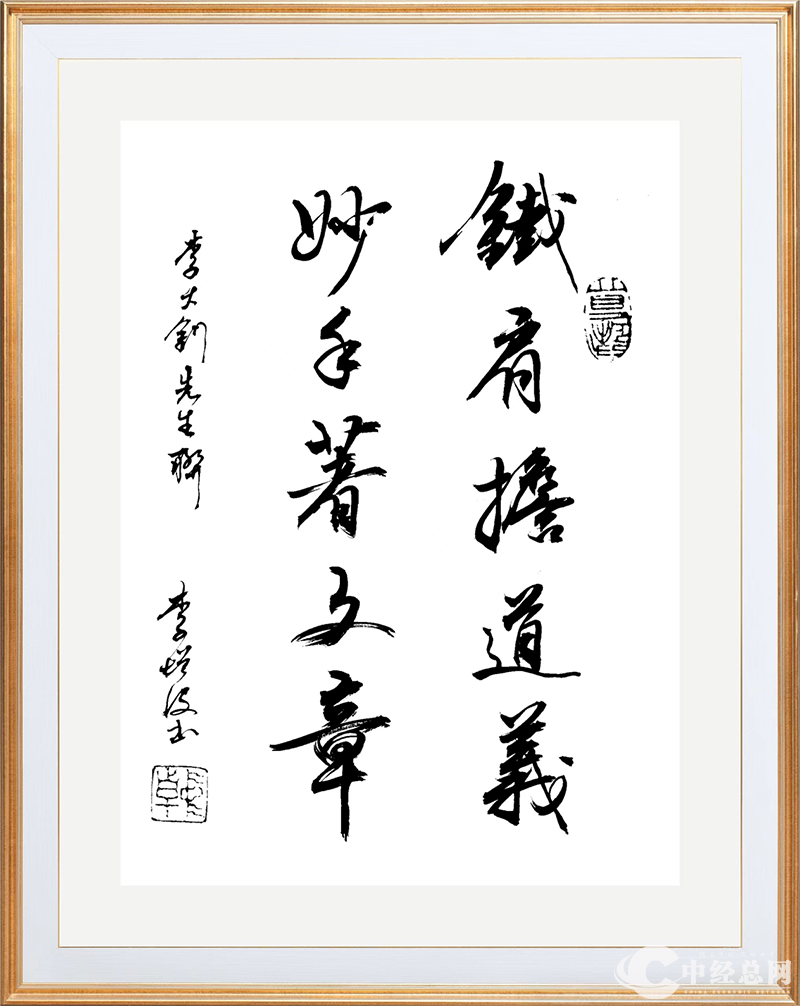 鐵肩擔道義
妙手著文章
李大釗先生聯
李
中经总网